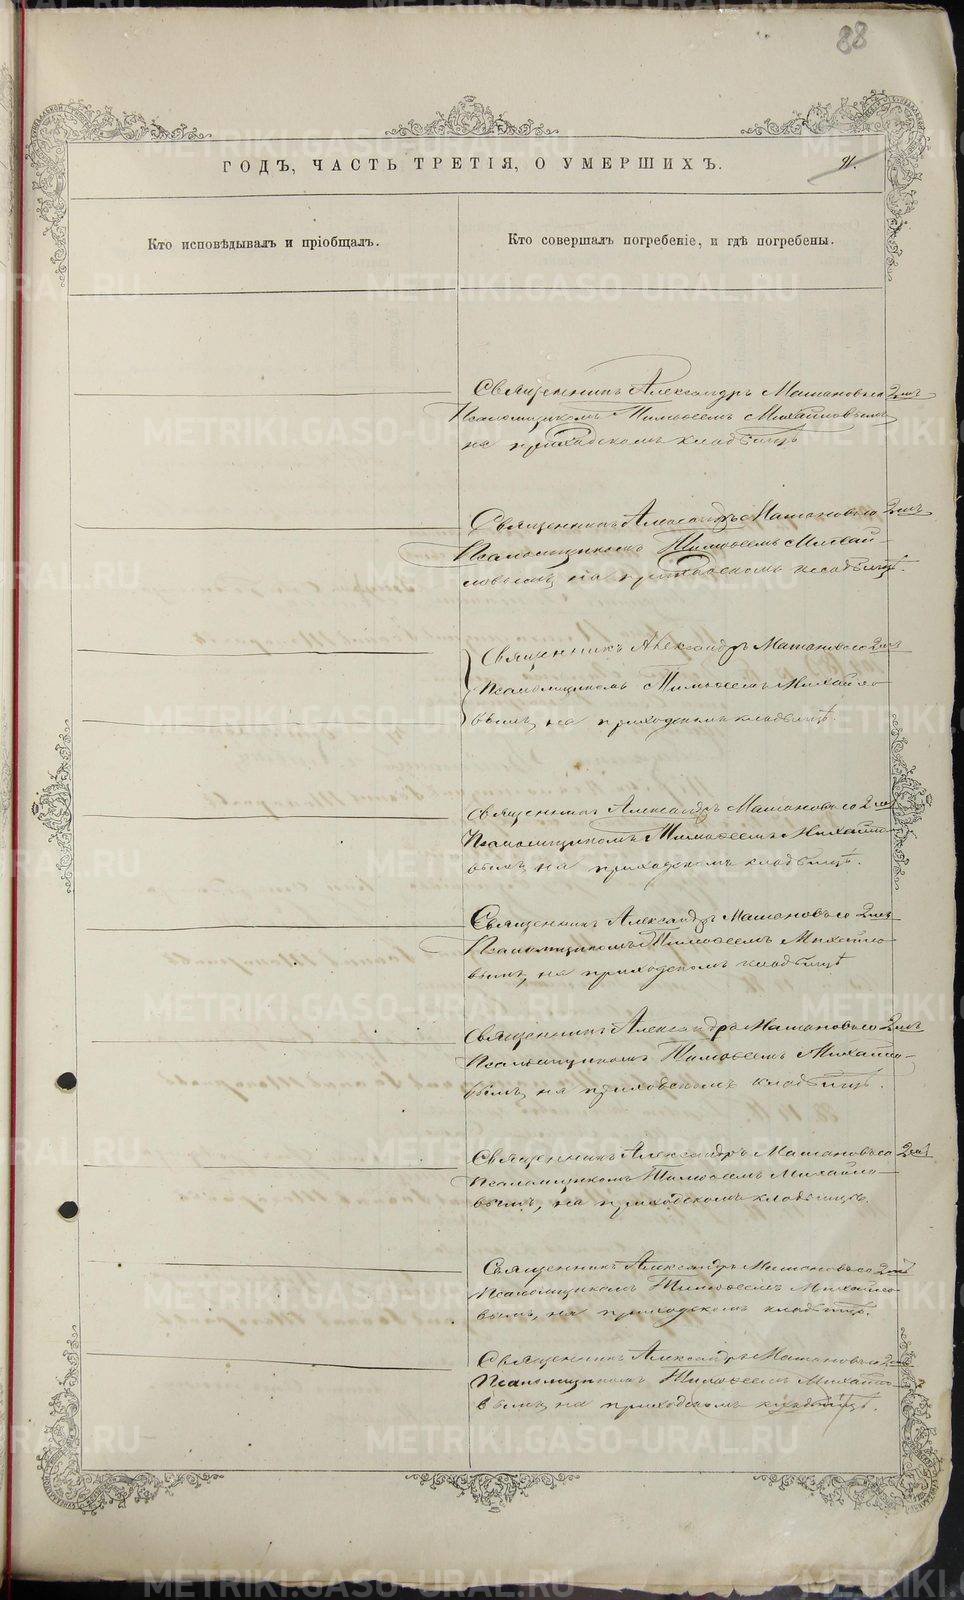 88
ГОДЪ, ЧАСТЬ ТРЕТІЯ, О УМЕРШИХЪ.
91.
Кто исповѣдывалъ и пріобщалъ.
Кто совершалъ погребеніе, и гдѣ погребены.
Священникъ Александръ съ
Псаломщикомъ Тимофеемъ Михайловымъ
на приходскомъ кладбищѣ
Священникъ Александръ съ
Псаломщикомъ Тимофеемъ Михай-
ловымъ, на приходскомъ кладбищѣ.
Священникъ Александръ съ
Псаломщикомъ Тимофеемъ Михайло-
вымъ, на приходскомъ кладбищѣ.
Священникъ Александръ съ
Псаломщикомъ Тимофеемъ Михайло-
вымъ, на приходскомъ кладбищѣ.
Священникъ Александръ съ
Псаломщикомъ Тимофеемъ Михайло-
вымъ, на приходскомъ кладбищѣ
Священникъ Александръ съ
Псаломщикомъ Тимофеемъ Михайло-
вымъ, на приходскомъ кладбищѣ.
Священникъ Александръ съ
Псаломщикомъ Тимофеемъ Михайло-
вымъ, на приходскомъ кладбищѣ.
Священникъ Александръ съ
Псаломщикомъ Тимофеемъ Михайло-
вымъ, на приходскомъ кладбищѣ.
Священникъ Александръ съ
Псаломщикомъ Тимофеемъ Михайло-
вымъ, на приходскомъ кладбищѣ.
METRIKI.GASO-URAL.RU